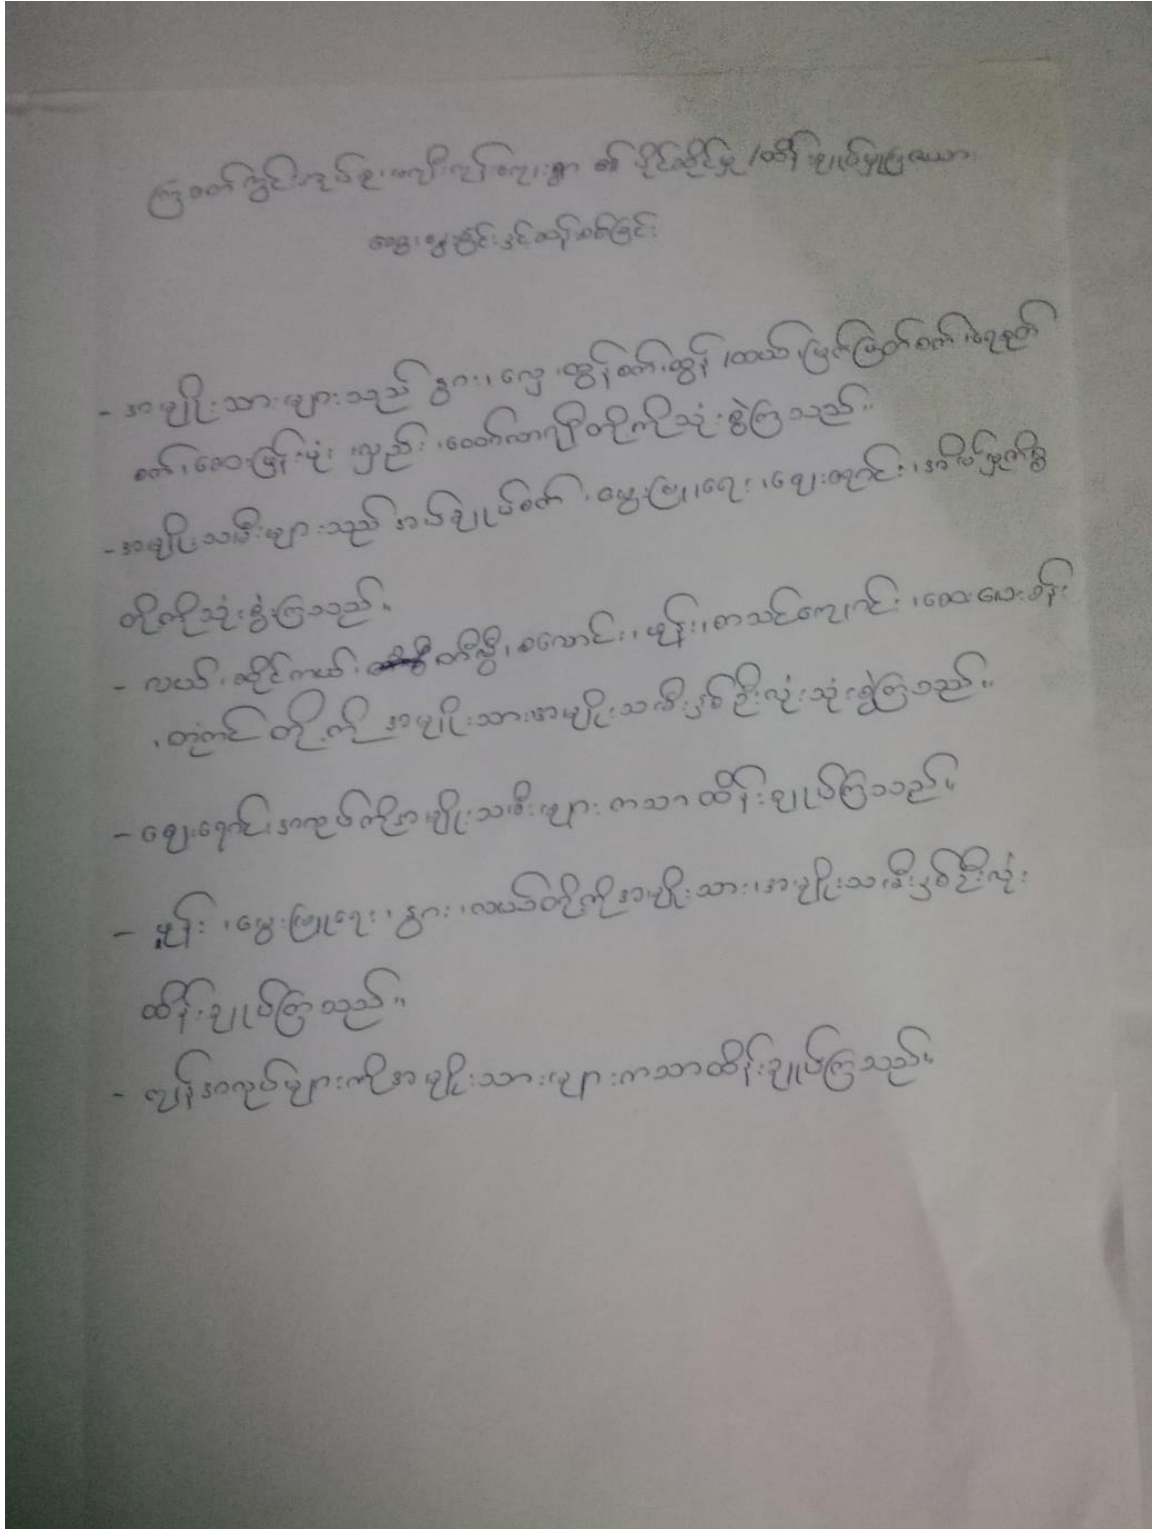 ကြံခတ်ကွင်းအုပ်စု၊ ကျေးရွာ ၏ ပိုင်ဆိုင်မှု /ထိန်းချုပ်မှုပြဇယား
ဆွေးနွေးခြင်းနှင့်ဆန်းစစ်ခြင်း
- အမျိုးသားများသည် နွား၊ လှေ ၊ထွန်စက်၊ထွန် /ထယ်၊မြက်ဖြတ်စက်၊ရေစုပ်
စက်၊ ဆေးဖြန်းပုံး ၊လှည်း ၊ထော်လာဂျီတို့ကိုသုံးစွဲကြသည်။
- အမျိုးသမီးများသည် အပ်ချုပ်စက် ၊ မွေးမြူရေး ၊ဈေးရောင်း ၊အိမ်မှုကိစ္စ
တို့ကိုသုံးစွဲကြသည်။
- လယ် ၊ ဆိုင်ကယ် ၊ တီဗွီ၊ စလောင်း ၊ ဖုန်း၊ စာသင်ကျောင်း ၊ဆေးပေးခန်း
၊ တုံကင် တို့ကို အမျိုးသားအမျိုးသမီးနှစ်ဦးလုံးသုံးစွဲကြသည်။
- ဈေးရောင်းအလုပ်ကိုအမျိုးသမီးများကသာထိန်းချုပ်ကြသည်။
- ဖုန်း ၊မွေးမြူရေး ၊ နွား ၊လယ်တို့ကိုအမျိုးသား၊အမျိုးသမီးနှစ်ဦးလုံး
ထိန်းချုပ်ကြသည်။
- ကျန်အလုပ်များကိုအမျိုးသားများကသာထိန်းချုပ်ကြသည်။